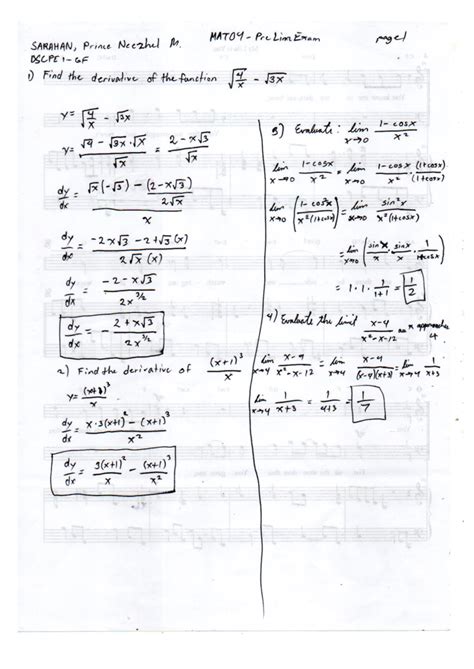 MAT04 - PreLim Exam
page 1
SARAHAN, Prince Neezhel M.
DSCPE 1-GF
1) Find the derivative of the function √(4/x) - √3x
y = √(4/x) - √3x
y = (√4 - √3x · √x)/√x = (2 - x√3)/√x
dy/dx = (√x(-√3) - (2-x√3)/(2√x))/x
dy/dx = (-2x√3 - 2+√3(x))/(2√x (x))
dy/dx = (-2 - x√3)/(2x^(3/2))
dy/dx = - (2 + x√3)/(2x^(3/2))
2) Find the derivative of (x+1)³/x
y = (x+1)³/x
dy/dx = (x·3(x+1)² - (x+1)³)/x²
dy/dx = 3(x+1)²/x - (x+1)³/x²
3) Evaluate: lim x→0 (1-cosx)/x²
lim x→0 (1-cosx)/x² = lim x→0 (1-cosx)/x² · (1+cosx)/(1+cosx)
lim x→0 (1-cos²x)/(x²(1+cosx)) = lim x→0 sin²x/(x²(1+cosx))
= lim x→0 (sinx/x · sinx/x · 1/(1+cosx))
= 1·1·1/(1+1) = 1/2
4) Evaluate the limit (x-4)/(x²-x-12) as x approaches 4
lim x→4 (x-4)/(x²-x-12) = lim x→4 (x-4)/((x-4)(x+3)) = lim x→4 1/(x+3)
lim x→4 1/(x+3) = 1/(4+3) = 1/7